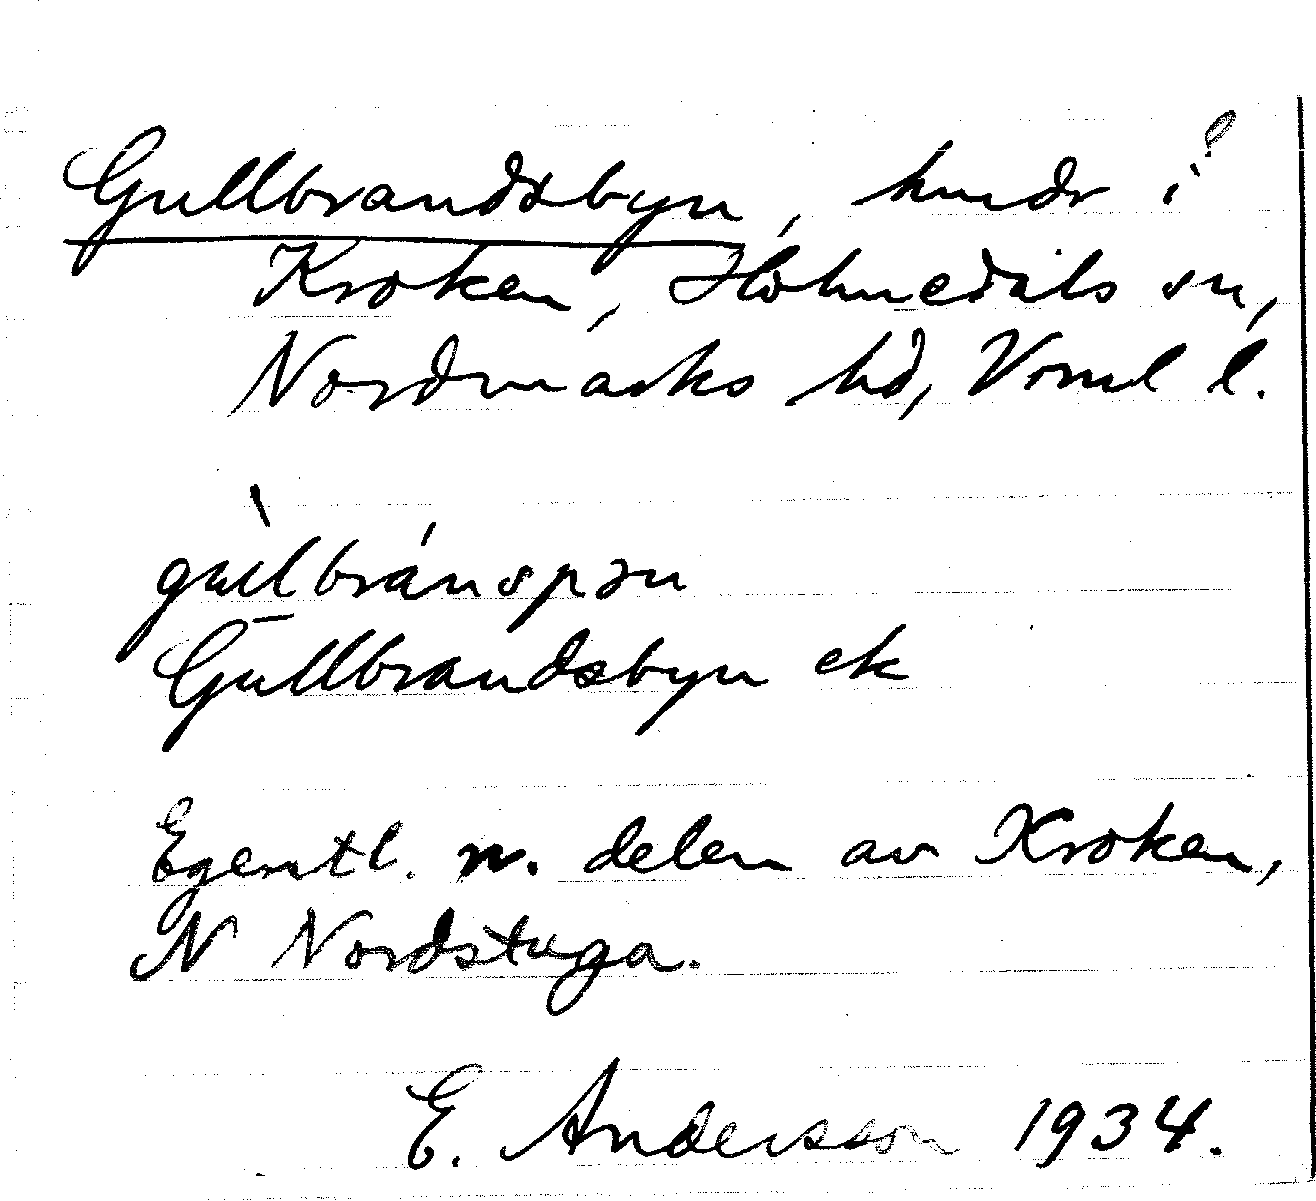 Gullbrandsbyn, hmdr i?
Kroken, Holmedals sn,
Nordmarks hd, Vrml l.
gullbránspən
Gullbrandsbyn ek
Egentl. n. delen av Kroken,
N Nordstuga.
E. Andersson 1934.